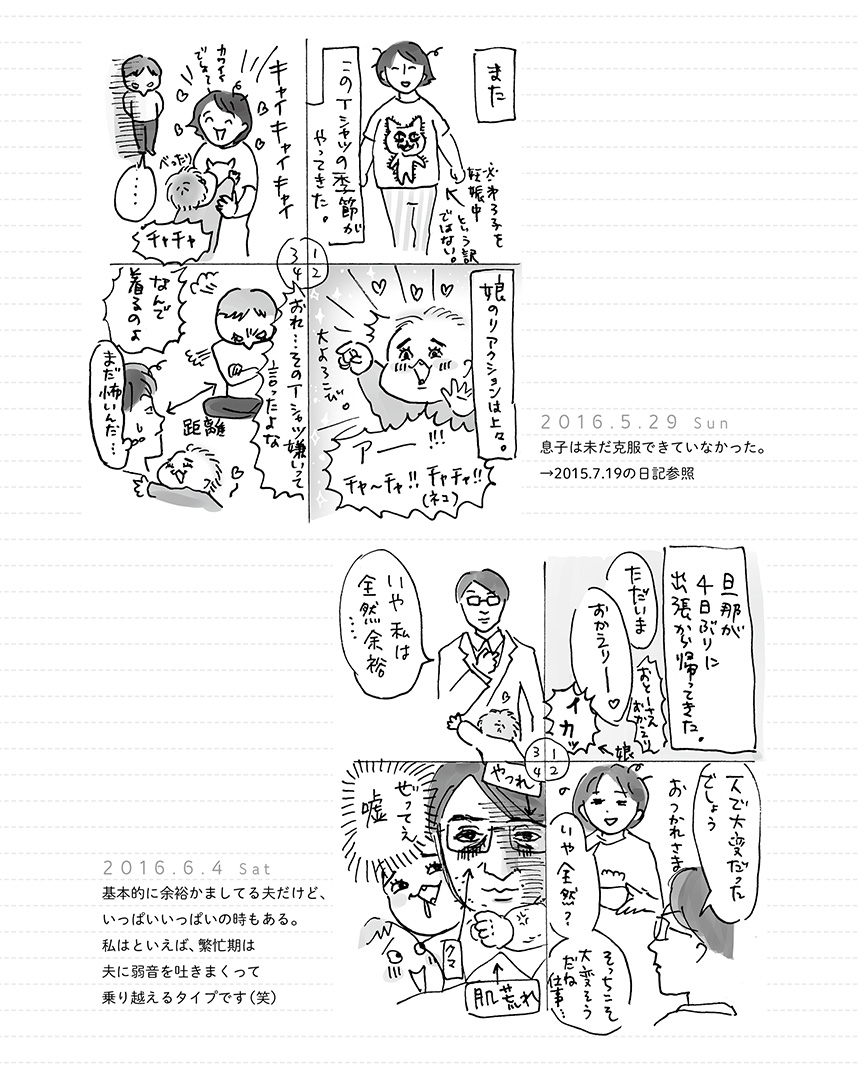 また
このTシャツの季節が
やってきた。
※第3子を
妊娠中
という訳
ではない。
娘のリアクションは上々。
大よろこび
アー!!!
チャ〜チャ!! チャチャ!!
(ネコ)
キャイキャイキャイ
カワイイ
でしょー
べったり
・・・・
チャチャ
おれ…そのTシャツ嫌いって
言ったよな
なんで
着るのよ
距離
まだ怖いんだ…
1
2
3
4
2016.5.29 Sun
息子は未だ克服できていなかった。
→2015.7.19の日記参照
旦那が
4日ぶりに
出張から帰ってきた。
ただいま
おかえりー♡
おとーさん
おかえり
イカッ
←娘
一人で大変だった
でしょう
おつかれさま
いや全然?
そっちこそ
大変そう
だね
仕事…
いや私は
全然余裕
・・・・
やつれ
ぜってえ
嘘
クマ
肌荒れ
1
2
3
4
2016.6.4 Sat
基本的に余裕かましてる夫だけど、
いっぱいいっぱいの時もある。
私はといえば、繁忙期は
夫に弱音を吐きまくって
乗り越えるタイプです(笑)